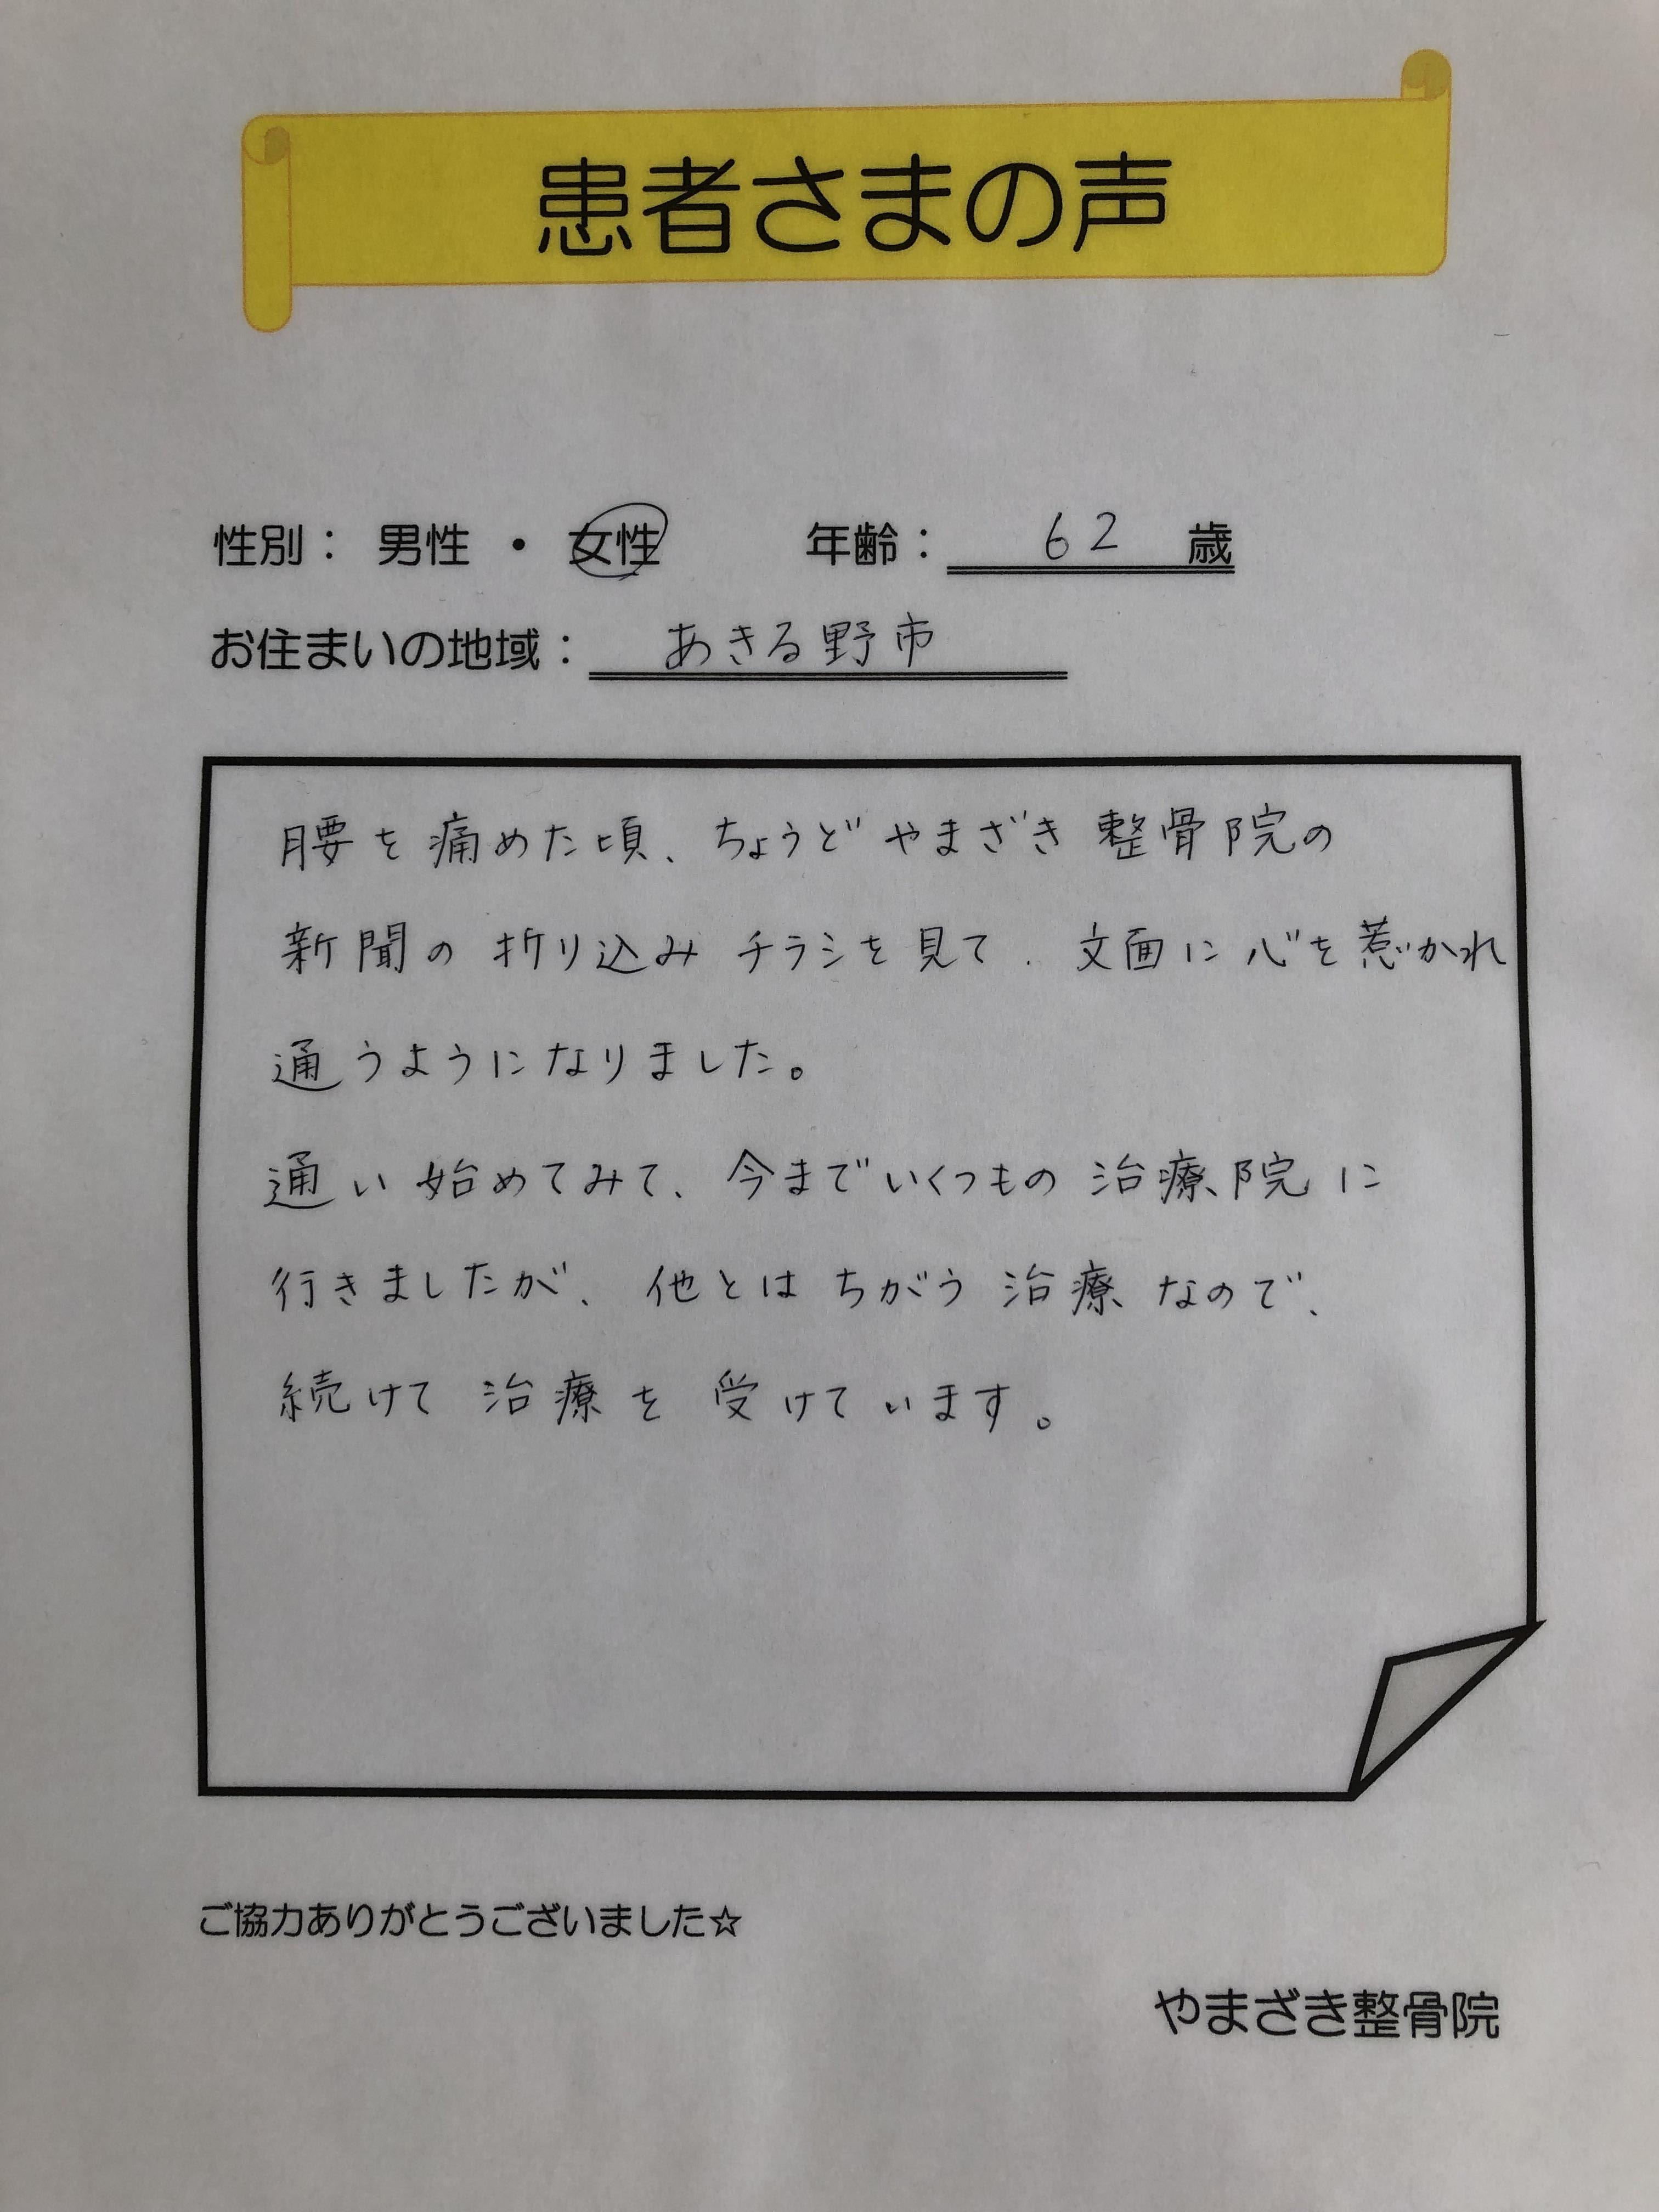 患者さまの声
性別： 男性 ・ 女性 年齢： 62 歳
お住まいの地域： あきる野市
腰を痛めた頃、ちょうどやまざき整骨院の
新聞の折り込みチラシを見て、文面に心を惹かれ
通うようになりました。
通い始めてみて、今までいくつもの治療院に
行きましたが、他とはちがう治療なので、
続けて治療を受けています。
ご協力ありがとうございました☆
やまざき整骨院